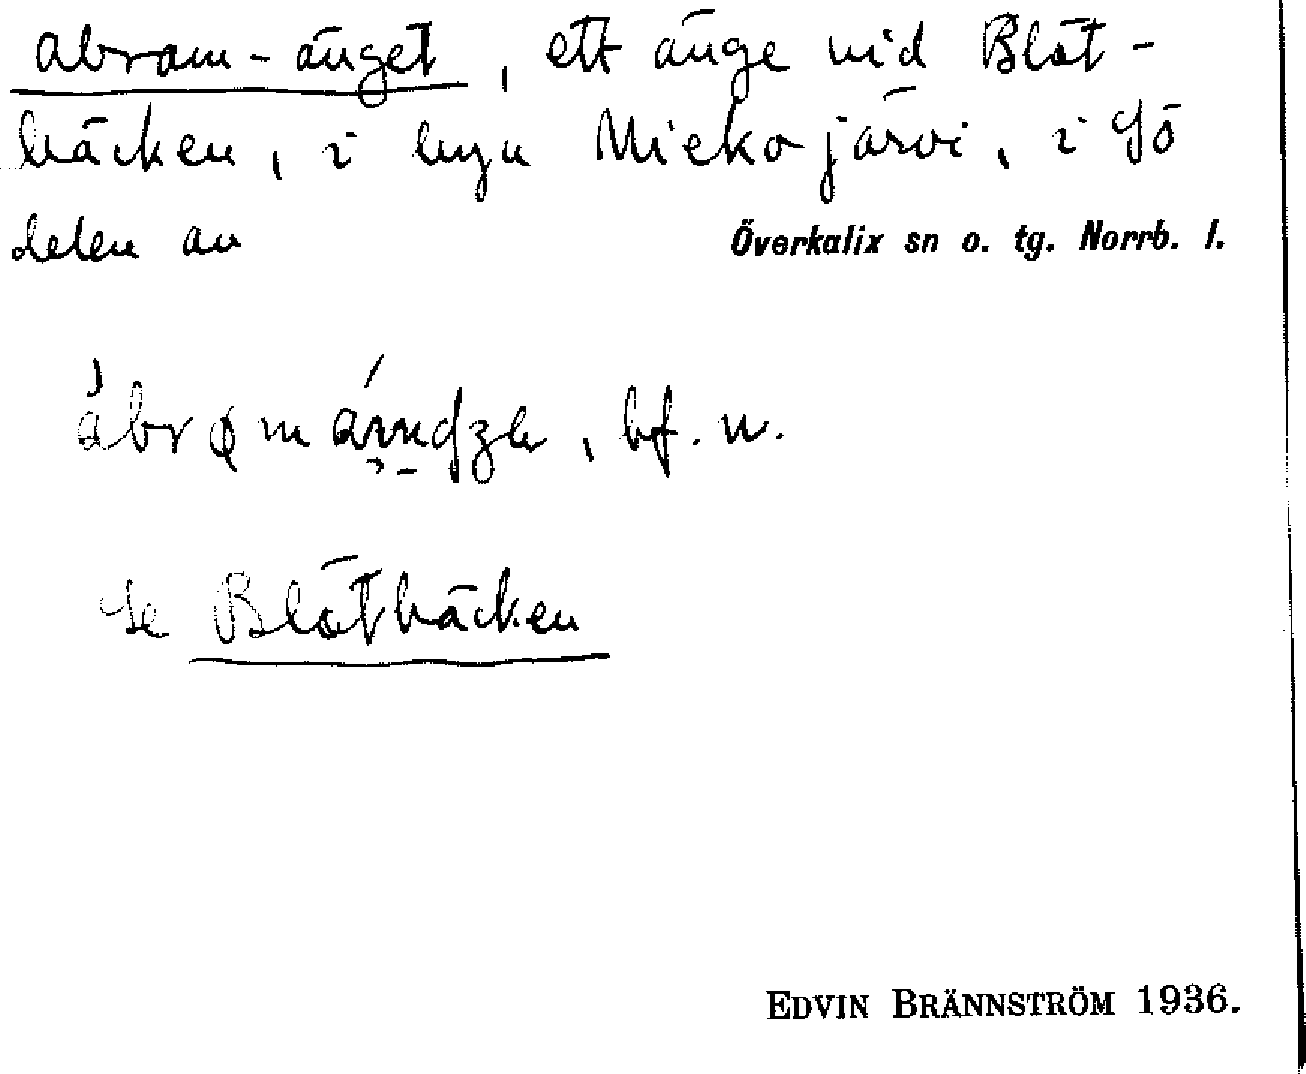 Abram-änget, ett änge vid Blöt-
bäcken, i byn Miekojärvi, i Sö
delen av Överkalix sn o. tg. Norrb. l.
bf. n.
Se Blötbäcken
EDVIN BRÄNNSTRÖM 1936.